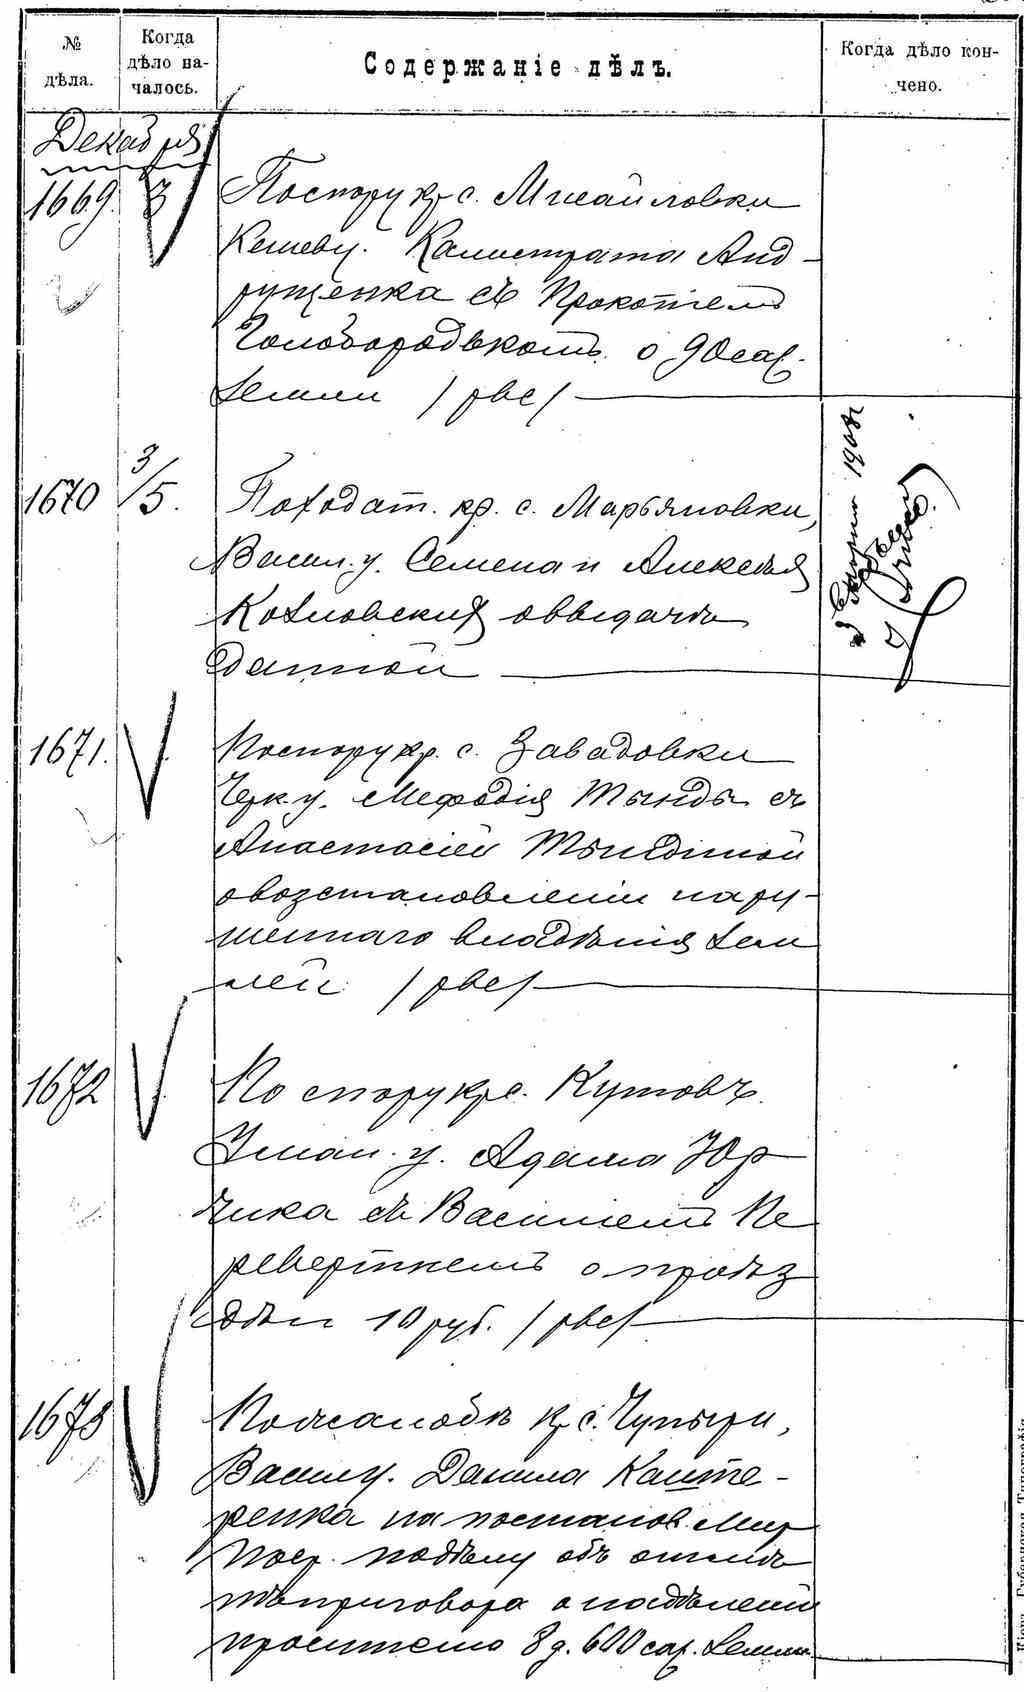 № дѣла.
Когда дѣло началось.
Содержаніе дѣлъ.
Когда дѣло кончено.
Декабря
1669. 3
По спору кр. с. Михайловки
Кашевату. Калистрата Анд-
рущенка съ Прокопіемъ
Голобородькомъ о 90 саж.
земли /рвс/
1670 3/5.
По ходат. кр. с. Марьяновки,
Васил. у. Семена и Алексѣя
Козловскихъ о выдачѣ
данной
1908
1671.
По спору кр. с. Завадовки
Черк. у. Мефодія Тынды съ
Анастасіей Тындиной
о возстановленіи нару-
шеннаго владѣнія зем
лей /рвс/
1672
По спору кр. с. Кутовъ.
Уман. у. Адама Юр
чика съ Василіемъ Пе
ревертнемъ о проѣз
дѣ и 10 руб. /рвс/
1673
По жалобѣ кр. с. Чупыри,
Васил. у. Данила Каште-
ренка на постанов. Мир
Поср. по дѣлу объ отмѣ
нѣ приговора о надѣленіи
просителю 8 д. 600 саж. земли.